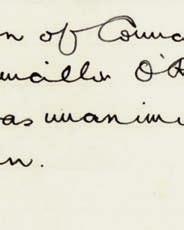 n of Counc
uncillor O'
as unanim
n.